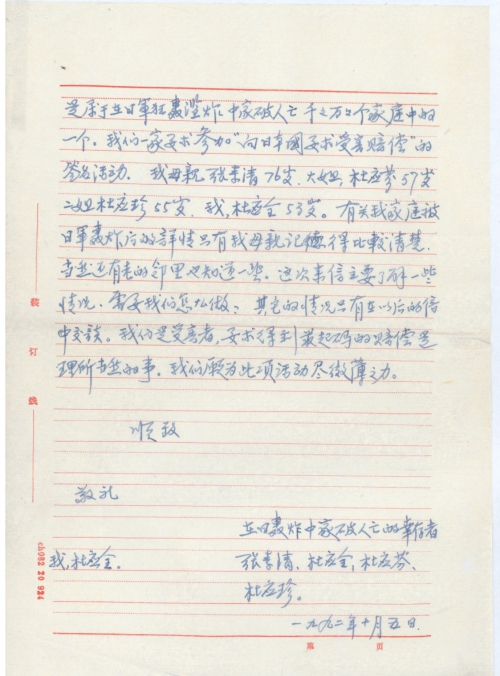 是属于在日军狂轰滥炸中家破人亡千千万万个家庭中的
一个。我们一家要求参加“向日本國要求受害赔偿”的
签名活动。我母亲张李清76岁,大姐,杜应芬57岁
二姐杜应珍55岁,我,杜应全53岁。有关我家庭被
日军轰炸后的详情只有我母亲记得比較清楚,
当然还有老的邻里也知道一些。这次来信主要了解一些
情况,需要我们怎么做、其它的情况只有在以后的信
中交谈。我们是受害者,要求得到最起码的赔偿是
理所当然的事。我们愿为此项活动尽微薄之力。
顺致
敬礼
在日轰炸中家破人亡的幸存者
我,杜应全。
张李清、杜应全、杜应芬、
杜应珍。
一九九二年十月五日
装订线
ch082 20 924
第 页